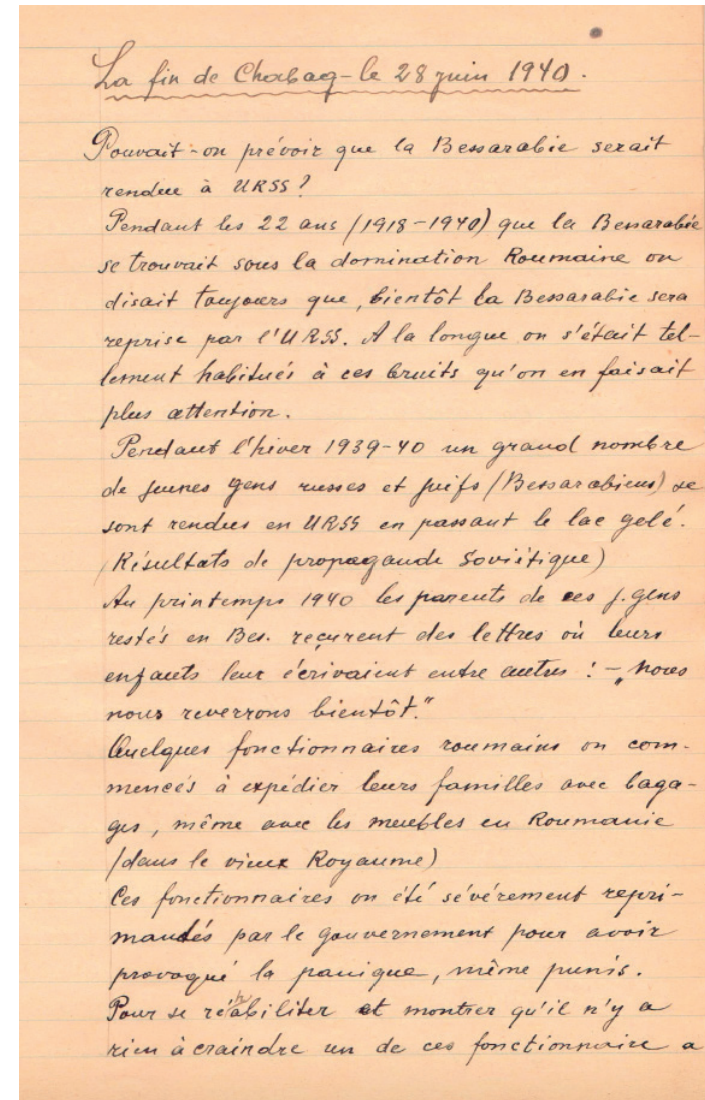 La fin de Chabag - le 28 juin 1940.
Pouvait-on prévoir que la Bessarabie serait
rendue à URSS?
Pendant les 22 ans (1918-1940) que la Bessarabie
se trouvait sous la domination Roumaine on
disait toujours que, bientôt la Bessarabie sera
reprise par l'URSS. A la longue on s'était tel-
lement habitués à ces bruits qu'on en faisait
plus attention.
Pendant l'hiver 1939-40 un grand nombre
de jeunes gens russes et juifs (Bessarabiens) se
sont rendus en URSS en passant le lac gelé.
(Résultats de propagande Soviétique)
Au printemps 1940 les parents de ces j. gens
restés en Bes. reçurent des lettres où leurs
enfants leur écrivaient entre autres : - „Nous
nous reverrons bientôt."
Quelques fonctionnaires roumains on com-
mencés à expédier leurs familles avec baga-
ges, même avec les meubles en Roumanie
(dans le vieux Royaume)
Ces fonctionnaires on été sévèrement repri-
mandés par le gouvernement pour avoir
provoqué la panique, même punis.
Pour se réhabiliter et montrer qu'il n'y a
rien à craindre un de ces fonctionnaire a